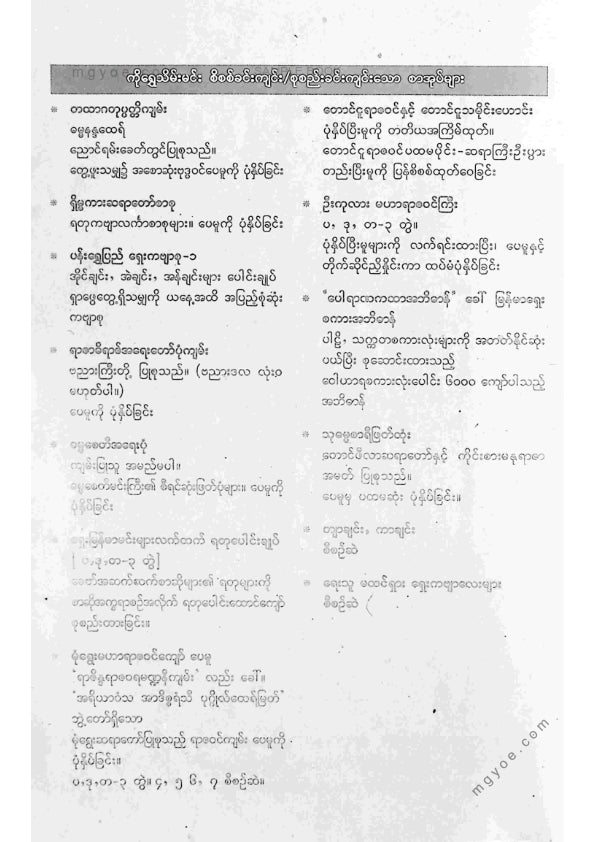 ကိုရွှေသိမ်းမင်း စိစစ်ခင်းကျင်း/စုစည်းခင်းကျင်းသော စာအုပ်များ
* တထာဂတုပ္ပတ္တိကျမ်း
ဓမ္မနန္ဒထေရ်
ညောင်ရမ်းခေတ်တွင်ပြုစုသည်။
တွေ့ဖူးသမျှ၌ အစောဆုံးဗုဒ္ဓဝင်ပေမူကို ပုံနှိပ်ခြင်း
* ရှိမ္မကားဆရာတော်စာစု
ရတုကဗျာလင်္ကာစာစုများ။ ပေမူကို ပုံနှိပ်ခြင်း
* ပန်းရွှေပြည် ရှေးကဗျာစု-၁
အိုင်ချင်း, အဲချင်း, အန်ချင်းများ ပေါင်းချုပ်
ရှာဖွေတွေ့ရှိသမျှကို ယနေ့အထိ အပြည့်စုံဆုံး
ကဗျာစု
* ရာဇာဓိရာဇ်အရေးတော်ပုံကျမ်း
ဗညားကြီးတို့ ပြုစုသည်။ (ဗညားဒလ လုံးဝ
မဟုတ်ပါ။)
ပေမူကို ပုံနှိပ်ခြင်း
* ဓမ္မစေတီအရေးပုံ
ကျမ်းပြုသူ အမည်မပါ။
ဓမ္မစေတီမင်းကြီး၏ စီရင်ဆုံးဖြတ်ပုံများ။ ပေမူကို
ပုံနှိပ်ခြင်း
* ရှေးမြန်မာမင်းများလက်ထက် ရတုပေါင်းချုပ်
[ ပ,ဒု,တ-၃ တွဲ]
ခေတ်အဆက်ဆက်စာဆိုများ၏ ရတုများကို
စာဆိုအက္ခရာစဉ်အလိုက် ရတုပေါင်းထောင်ကျော်
စုစည်းထားခြင်း။
* မုံရွေးမဟာရာဇဝင်ကျော် ပေမူ
"ရာဇိန္ဒရာဇဝရမဏ္ဍနီကျမ်း" လည်း ခေါ်။
"အရိယာဝံသ အာဒိစ္စရံသီ ပုဂ္ဂိုလ်ထေရ်မြတ်"
ဘွဲ့တော်ရှိသော
မုံရွေးဆရာတော်ပြုစုသည့် ရာဇဝင်ကျမ်း ပေမူကို
ပုံနှိပ်ခြင်း။
ပ,ဒု,တ-၃ တွဲ။ ၄, ၅ ၆, ၇ စီစဉ်ဆဲ။
* တောင်ငူရာဇဝင်နှင့် တောင်ငူသမိုင်းဟောင်း
ပုံနှိပ်ပြီးမူကို တတိယအကြိမ်ထုတ်။
တောင်ငူရာဇဝင်ပထမပိုင်း-ဆရာကြီးဦးပွား
တည်းပြီးမူကို ပြန်စိစစ်ထုတ်ဝေခြင်း
* ဦးကုလား မဟာရာဇဝင်ကြီး
ပ, ဒု, တ-၃ တွဲ။
ပုံနှိပ်ပြီးမူများကို လက်ရင်းထားပြီး၊ ပေမူနှင့်
တိုက်ဆိုင်ညှိနှိုင်းကာ ထပ်မံပုံနှိပ်ခြင်း
* "ပေါရာဏကထာအဘိဓာန်" ခေါ် မြန်မာရှေး
စကားအဘိဓာန်
ပါဠိ, သက္ကတစကားလုံးများကို အတတ်နိုင်ဆုံး
ပယ်ပြီး စုဆောင်းထားသည့်
ဝေါဟာရစကားလုံးပေါင်း ၆၀၀၀ ကျော်ပါသည့်
အဘိဓာန်
* သုဓမ္မစာရီဖြတ်ထုံး
တောင်ဖီလာဆရာတော်နှင့် ကိုင်းစားမနုရာဇာ
အမတ် ပြုစုသည်။
ပေမူမှ ပထမဆုံး ပုံနှိပ်ခြင်း။
* တျာချင်း, ကာချင်း
စီစဉ်ဆဲ
* ရေးသူ မထင်ရှား ရှေးကဗျာလေးများ
စီစဉ်ဆဲ
mgyoe.com